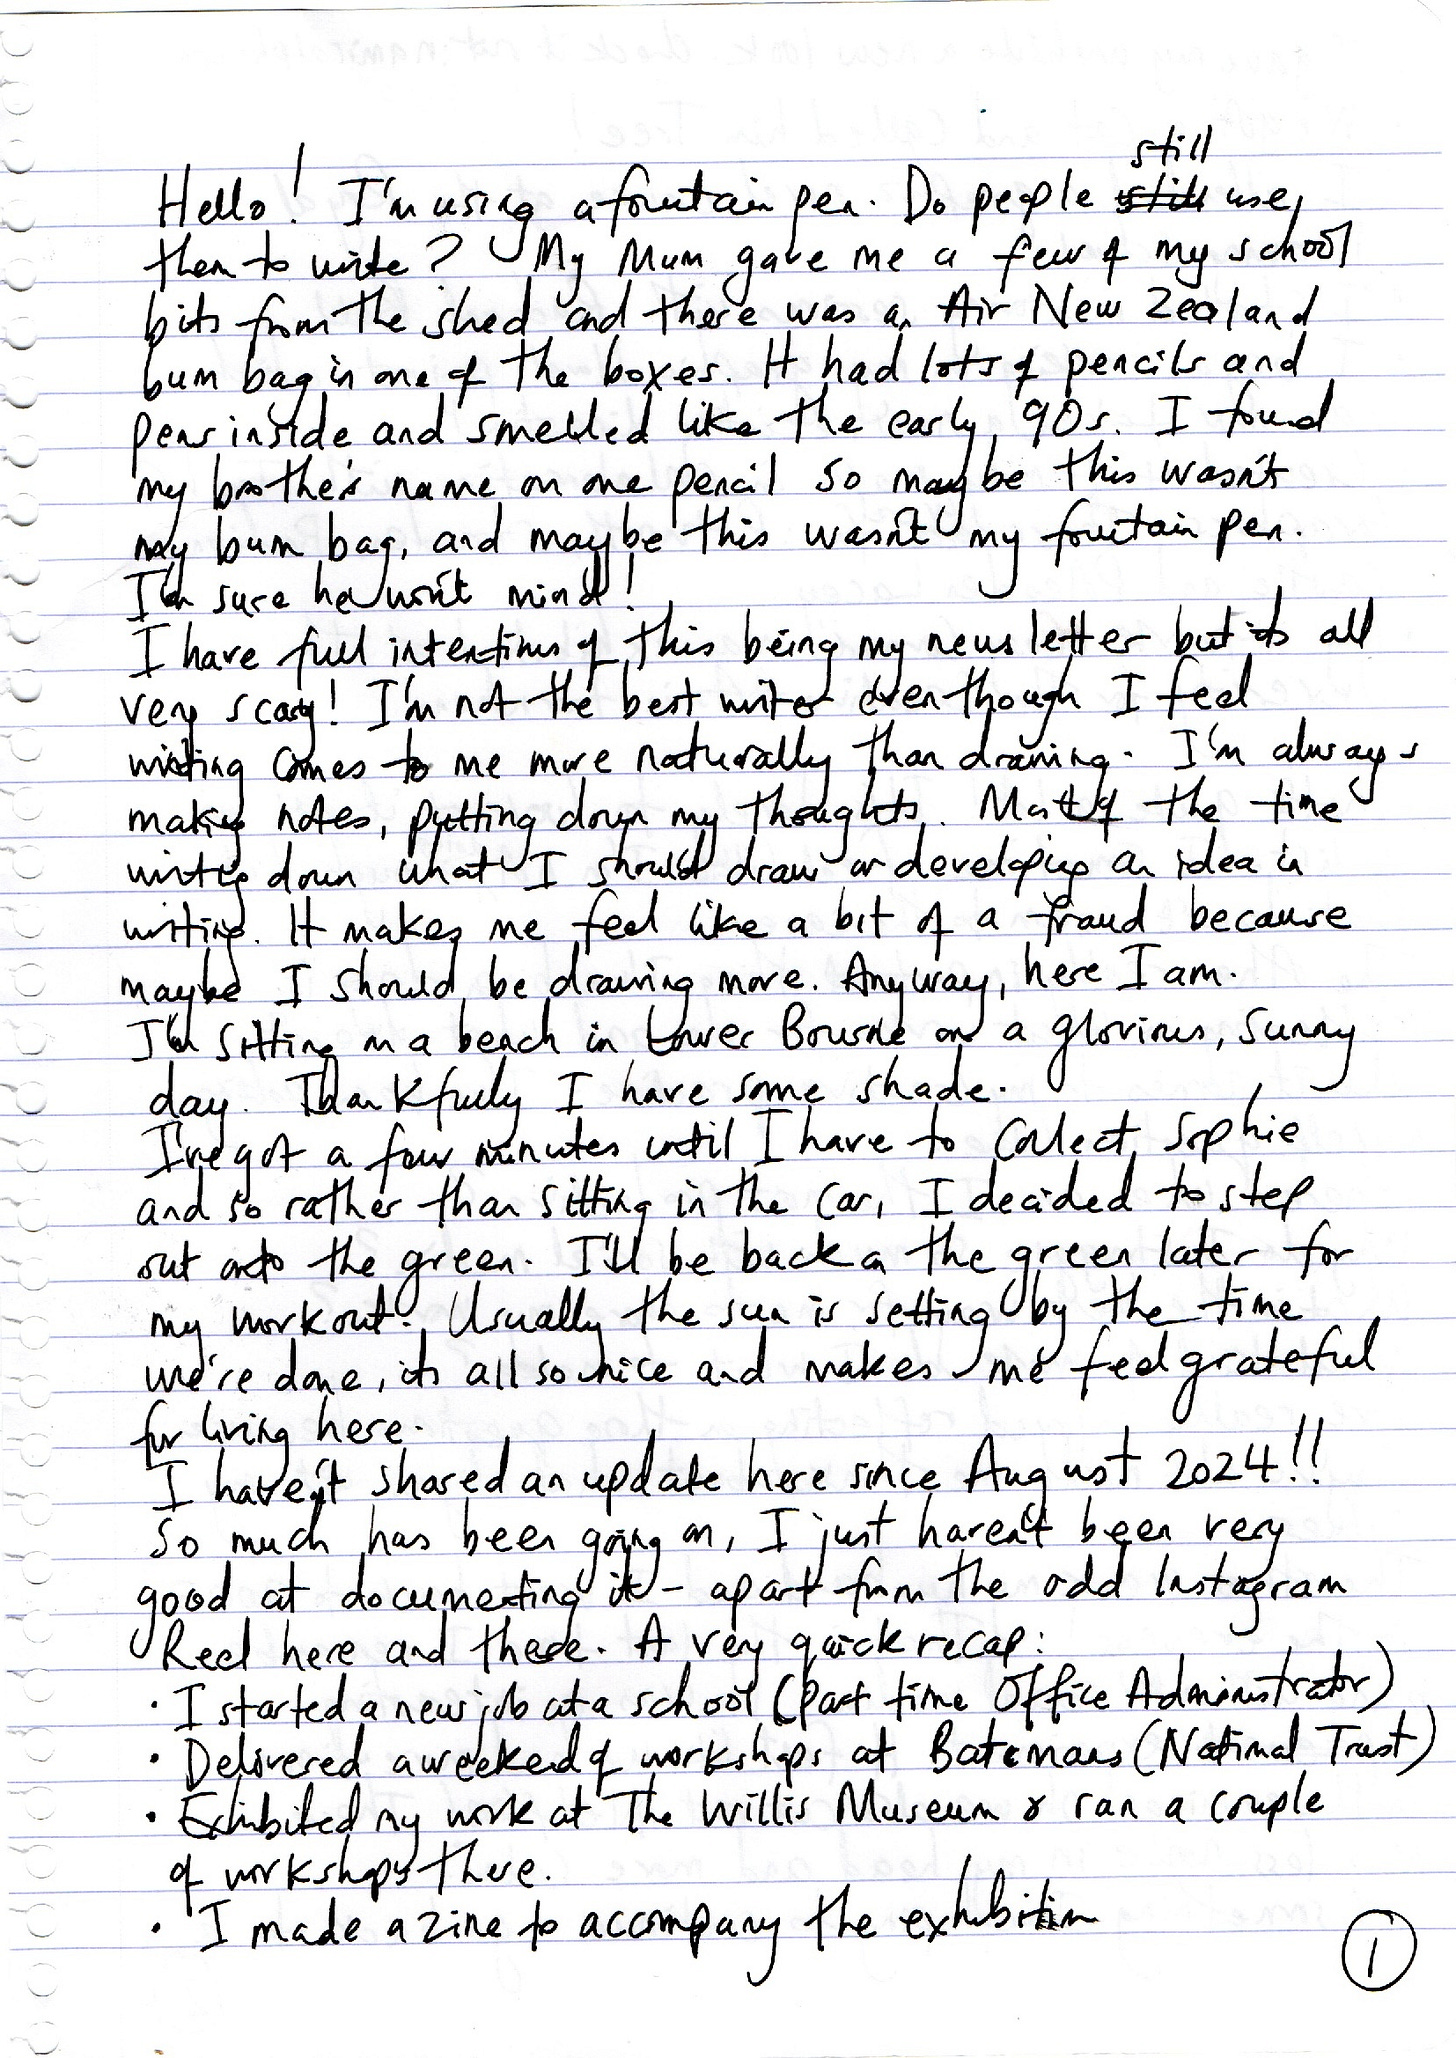 still
Hello! I'm using a fountain pen. Do people still use
them to write? My Mum gave me a few of my school
bits from the shed and there was an Air New Zealand
bum bag in one of the boxes. It had lots of pencils and
pens inside and smelled like the early 90s. I found
my brother's name on one pencil so maybe this wasn't
my bum bag, and maybe this wasn't my fountain pen.
I'm sure he won't mind!
I have full intentions of this being my newsletter but its all
very scary! I'm not the best writer even though I feel
writing comes to me more naturally than drawing. I'm always
making notes, putting down my thoughts. Most of the time
writing down what I should draw or developing an idea in
writing. It makes me feel like a bit of a fraud because
maybe I should be drawing more. Anyway, here I am.
I'm sitting on a bench in Lower Bourne on a glorious, sunny
day. Thankfully I have some shade.
I've got a few minutes until I have to collect Sophie
and so rather than sitting in the car, I decided to step
out onto the green. I'll be back on the green later for
my workout. Usually the sun is setting by the time
we're done, its all so nice and makes me feel grateful
for living here.
I haven't shared an update here since August 2024!!
So much has been going on, I just haven't been very
good at documenting it - apart from the odd Instagram
Reel here and there. A very quick recap:
· I started a new job at a school (part time Office Administrator)
· Delivered a weekend of workshops at Batemans (National Trust)
· Exhibited my work at The Willis Museum & ran a couple
of workshops there.
· I made a zine to accompany the exhibition
1